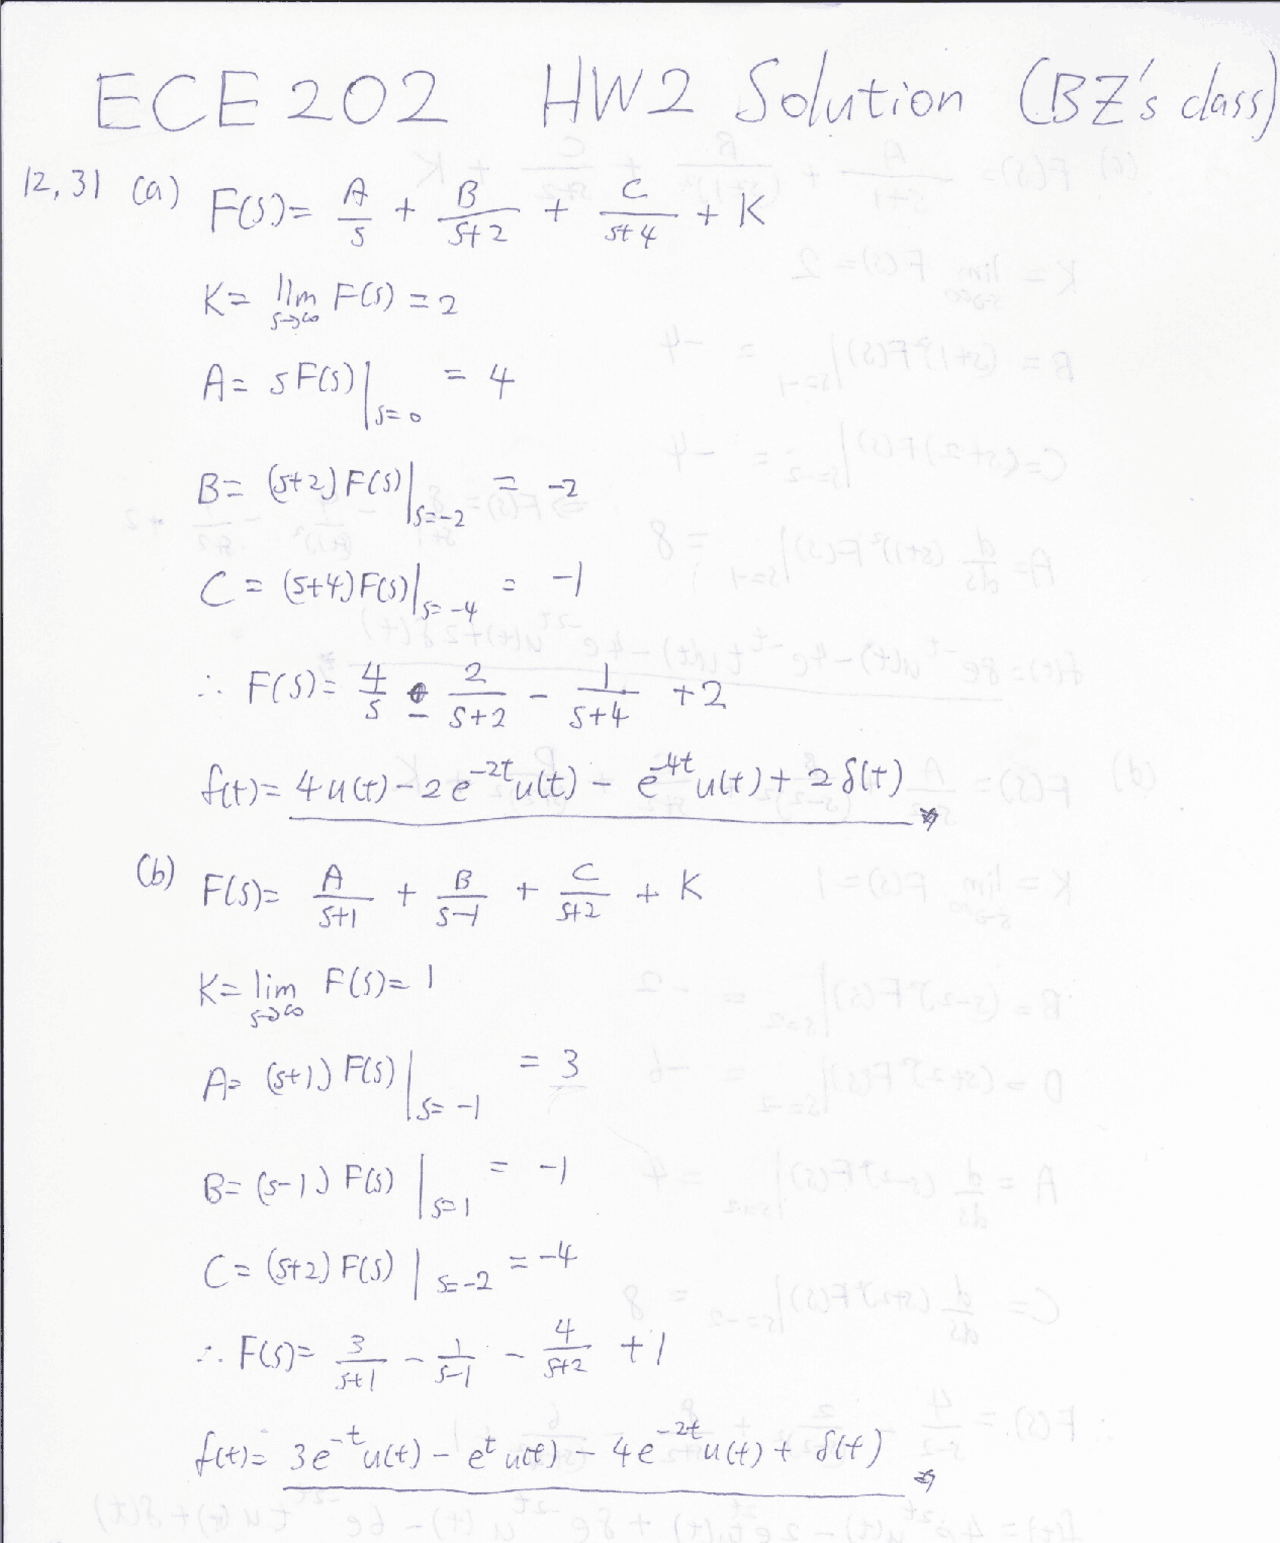 ECE 202 HW2 Solution (BZ's class)
12,31 (a) F(s)= A/s + B/(s+2) + C/(s+4) + K
K= lim s→∞ F(s) = 2
A= sF(s)|s=0 = 4
B= (s+2)F(s)|s=-2 = -2
C = (s+4)F(s)|s=-4 = -1
∴ F(s)= 4/s - 2/(s+2) - 1/(s+4) +2
f(t)= 4u(t)-2e^-2t u(t) - e^-4t u(t)+ 2δ(t)
(b) F(s)= A/(s+1) + B/(s-1) + C/(s+2) + K
K= lim s→∞ F(s)= 1
A= (s+1) F(s)|s=-1 = 3
B= (s-1) F(s)|s=1 = -1
C= (s+2) F(s)|s=-2 = -4
∴ F(s)= 3/(s+1) - 1/(s-1) - 4/(s+2) +1
f(t)= 3e^-t u(t) - e^t u(t) - 4e^-2t u(t) + δ(t)